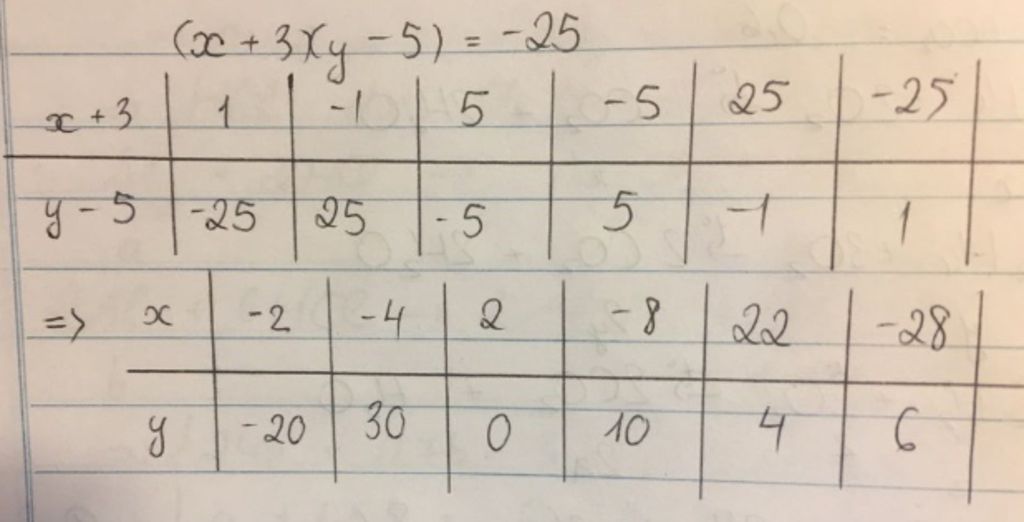 (x + 3)(y - 5) = -25
x + 3 1 -1 5 -5 25 -25
y - 5 -25 25 -5 5 -1 1
=> x -2 -4 2 -8 22 -28
y -20 30 0 10 4 6